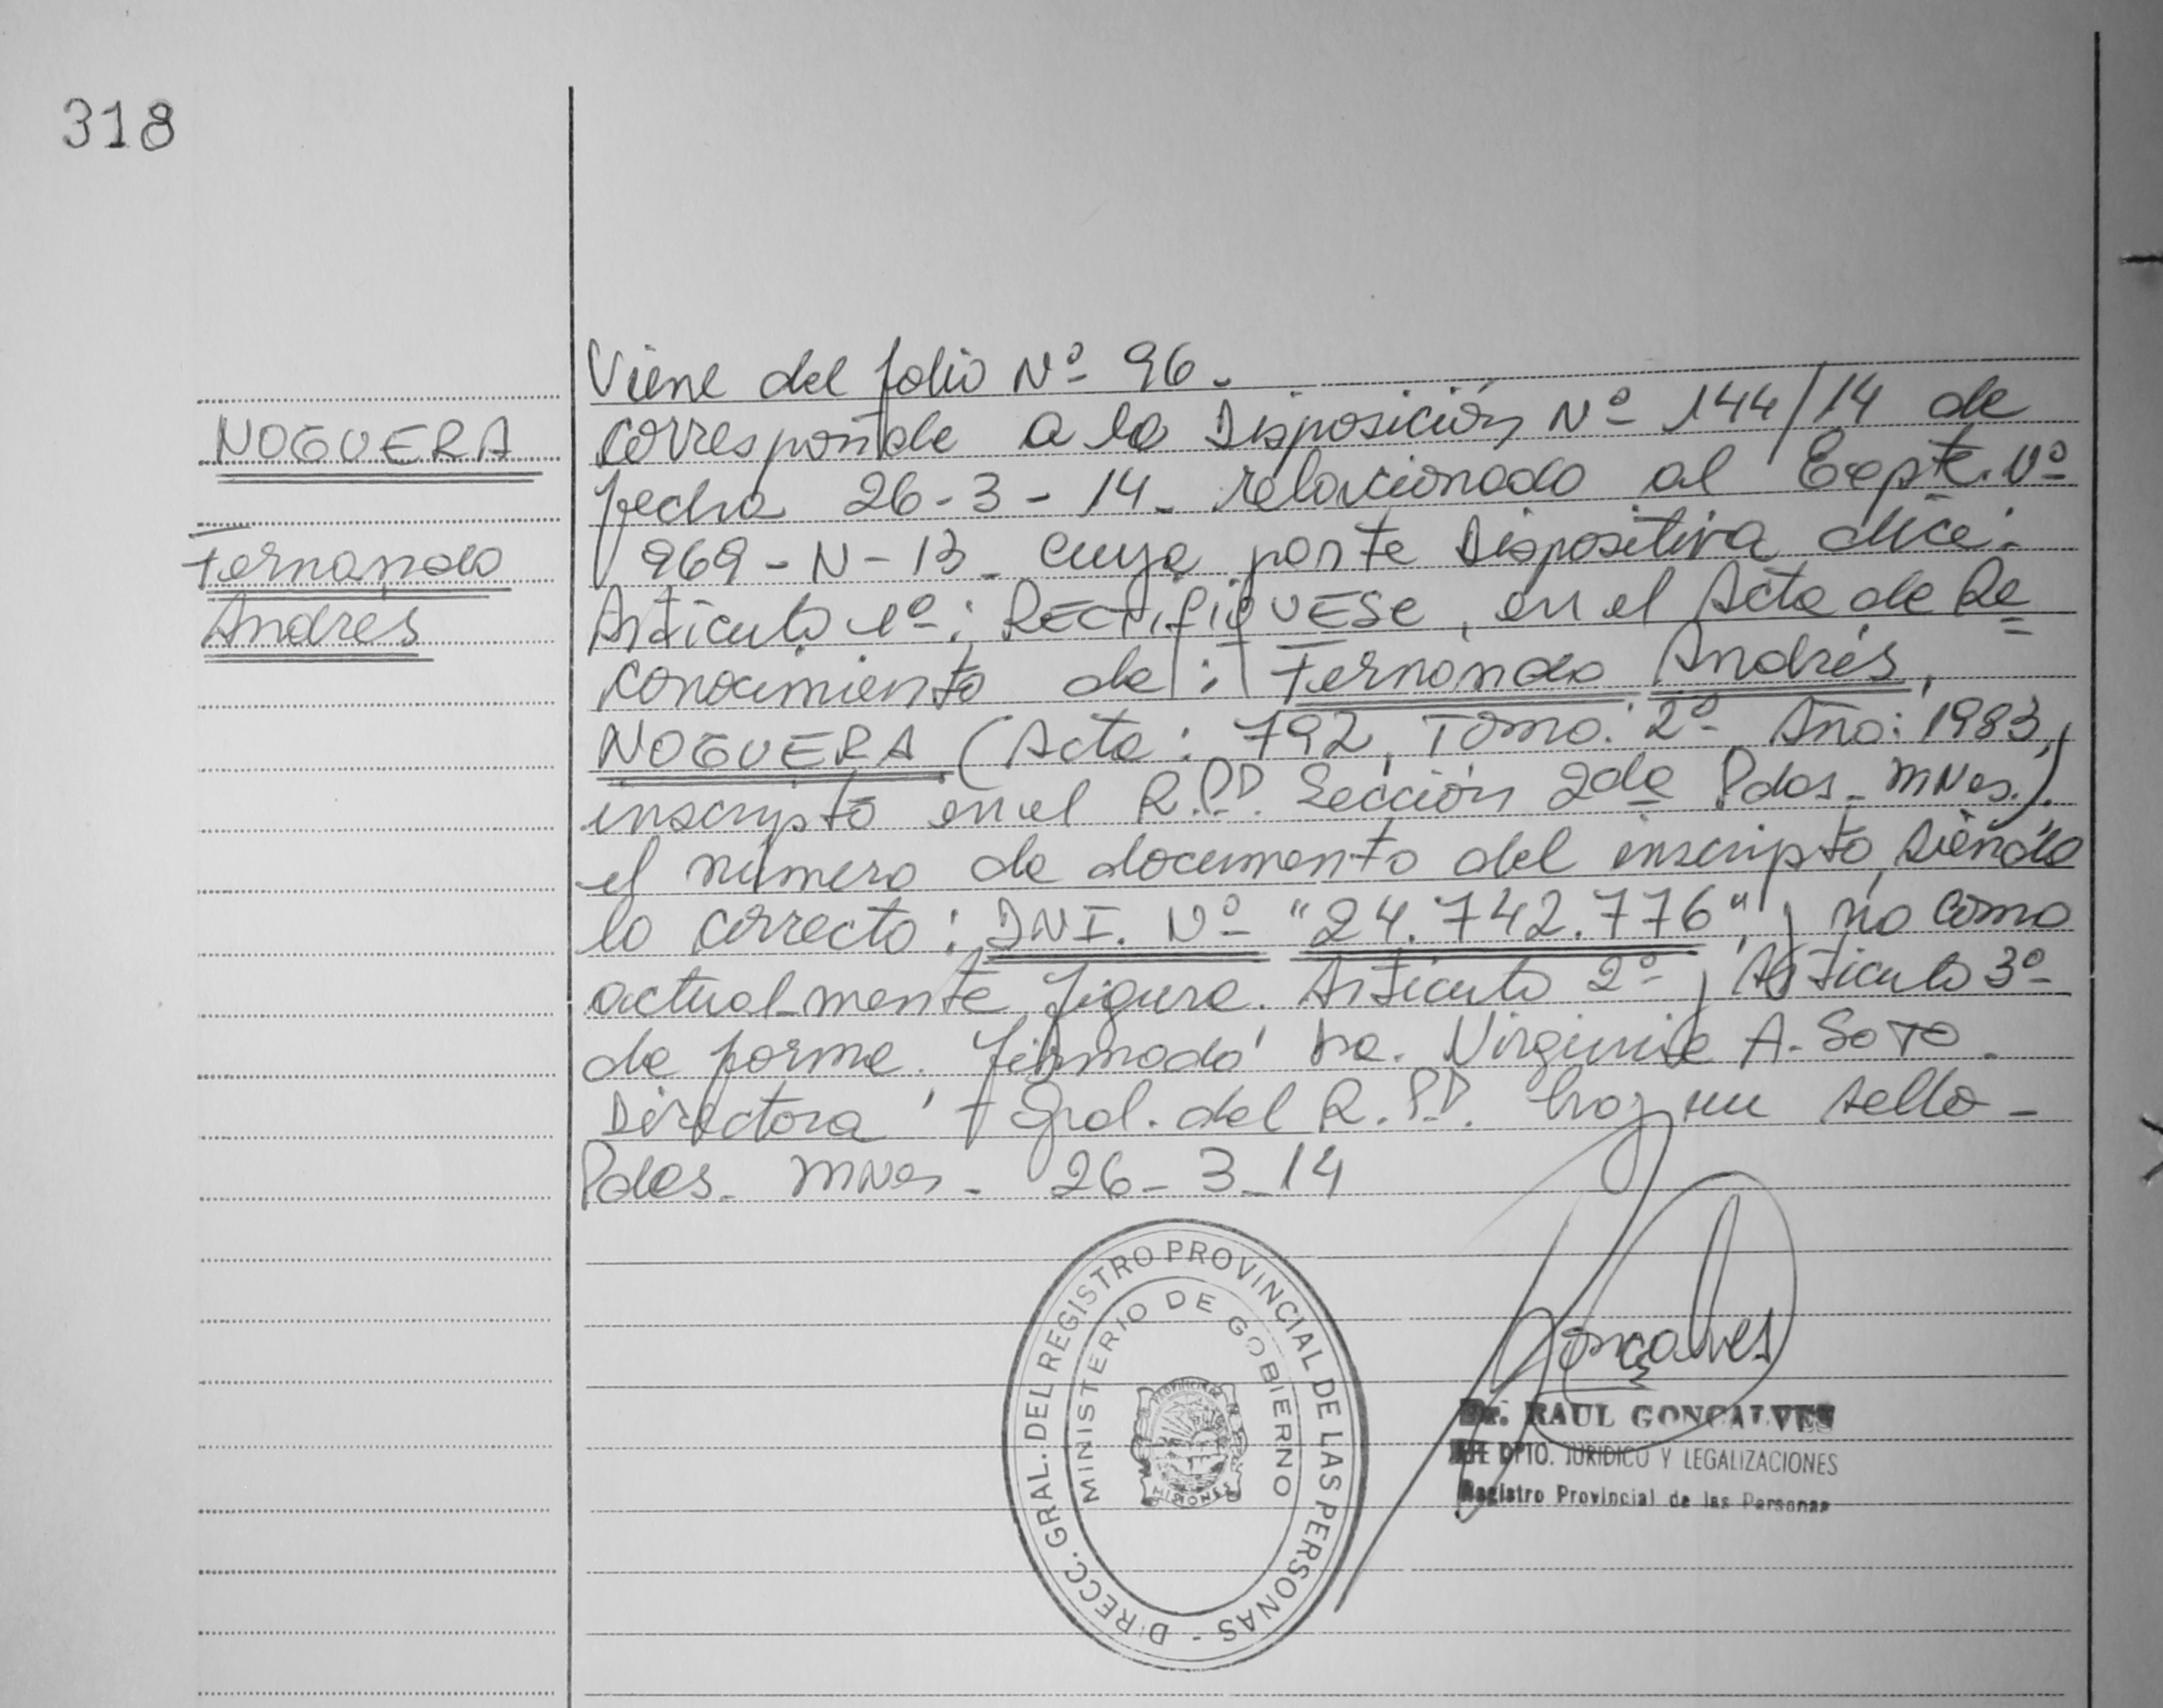 318
NOGUERA
Fernando
Andrés
Viene del folio Nº 96.
corresponde a la Disposición Nº 144/14 de
fecha 26-3-14. relacionado al Expte. Nº
969-N-13. cuya parte Dispositiva dice:
Artículo 1º: RECTIFIQUESE, en el Acta de Re
conocimiento de: Fernando Andrés,
NOGUERA (Acta: 792, Tomo: 2º Año: 1983,
inscripto en el R.P.P. Sección 2da Pdas. MNes.).
el número de documento del inscripto, siendo
lo correcto: DNI. Nº "24.742.776", y no como
actualmente figura. Artículo 2º y Artículo 3º
de forma. firmado Dra. Virginia A. SOTO.
Directora Gral. del R.P.P. hay un sello-
Pdas. MNes. 26-3-14
DIRECC. GRAL. DEL REGISTRO PROVINCIAL DE LAS PERSONAS -
MINISTERIO DE GOBIERNO
PROVINCIA DE
MISIONES
Goncalves
Dr. RAUL GONCALVES
DPTO. JURIDICO Y LEGALIZACIONES
Registro Provincial de las Personas